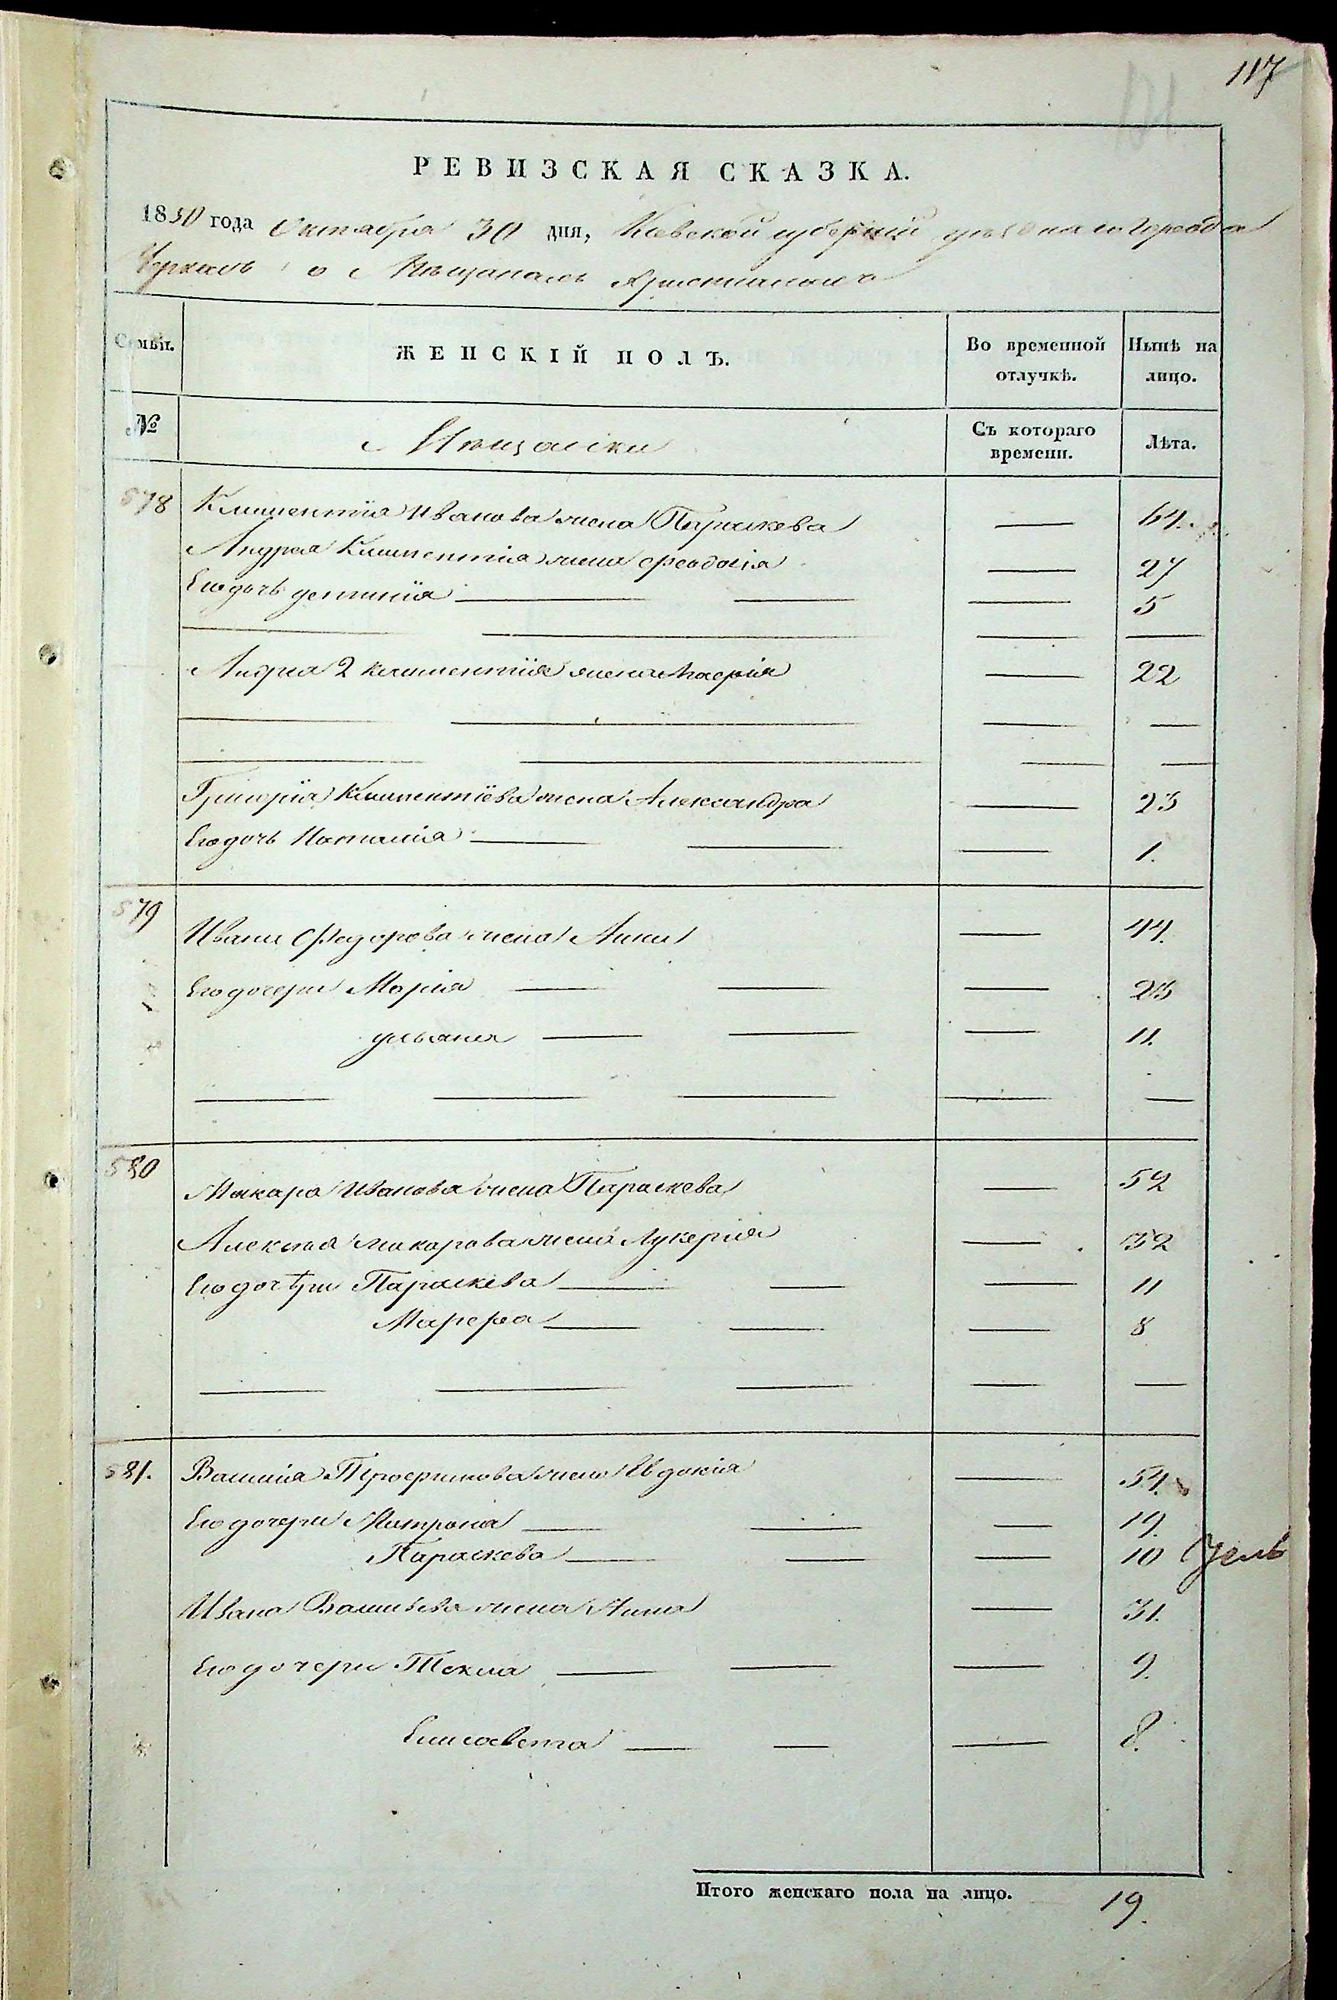 117
РЕВИЗСКАЯ СКАЗКА.
1850 года Октября 30 дня, Киевской губерніи уѣзднаго города
Черкасъ о Мѣщанахъ Христианахъ
Семьи. ЖЕНСКІЙ ПОЛЪ. Во временной отлучкѣ. Нынѣ на лицо.
№ Мѣщанки Съ котораго времени. Лѣта.
578 Климентія Иванова жена Параскева — 64.
Андрея Климентія жена Феодосія — 27
Его дочь Устинія — 5
Андрея 2 Климентія жена Марія — 22
Григорія Климентіева жена Александра — 23
Его дочь Наталія — 1.
579 Ивана Федорова жена Анна — 44.
Его дочери Марія — 23
Ульяна — 11.
580 Макара Иванова жена Параскева — 52
Алексѣя Макарова жена Лукерія — 32
Его дочѣри Параскева — 11
Марфа — 8
581. Василія Евдокія — 54.
Его дочери Матрона — 19.
Параскева — 10
Ивана Васильева жена Анна — 31.
Его дочери Текла — 9.
Елисавета — 8.
Итого женскаго пола на лицо. 19.